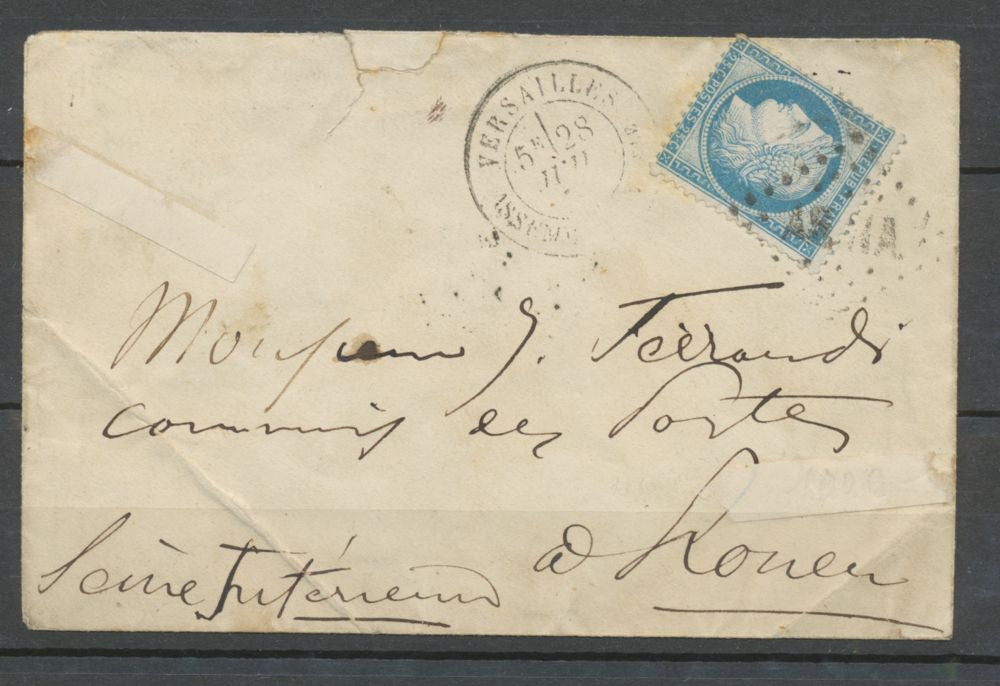 VERSAILLES
5E 28
ASSEM
25c POSTES 25c
REPUB FRANC
Monsieur J. Ferrandi
commis des Postes
à Rouen
Seine Inférieure